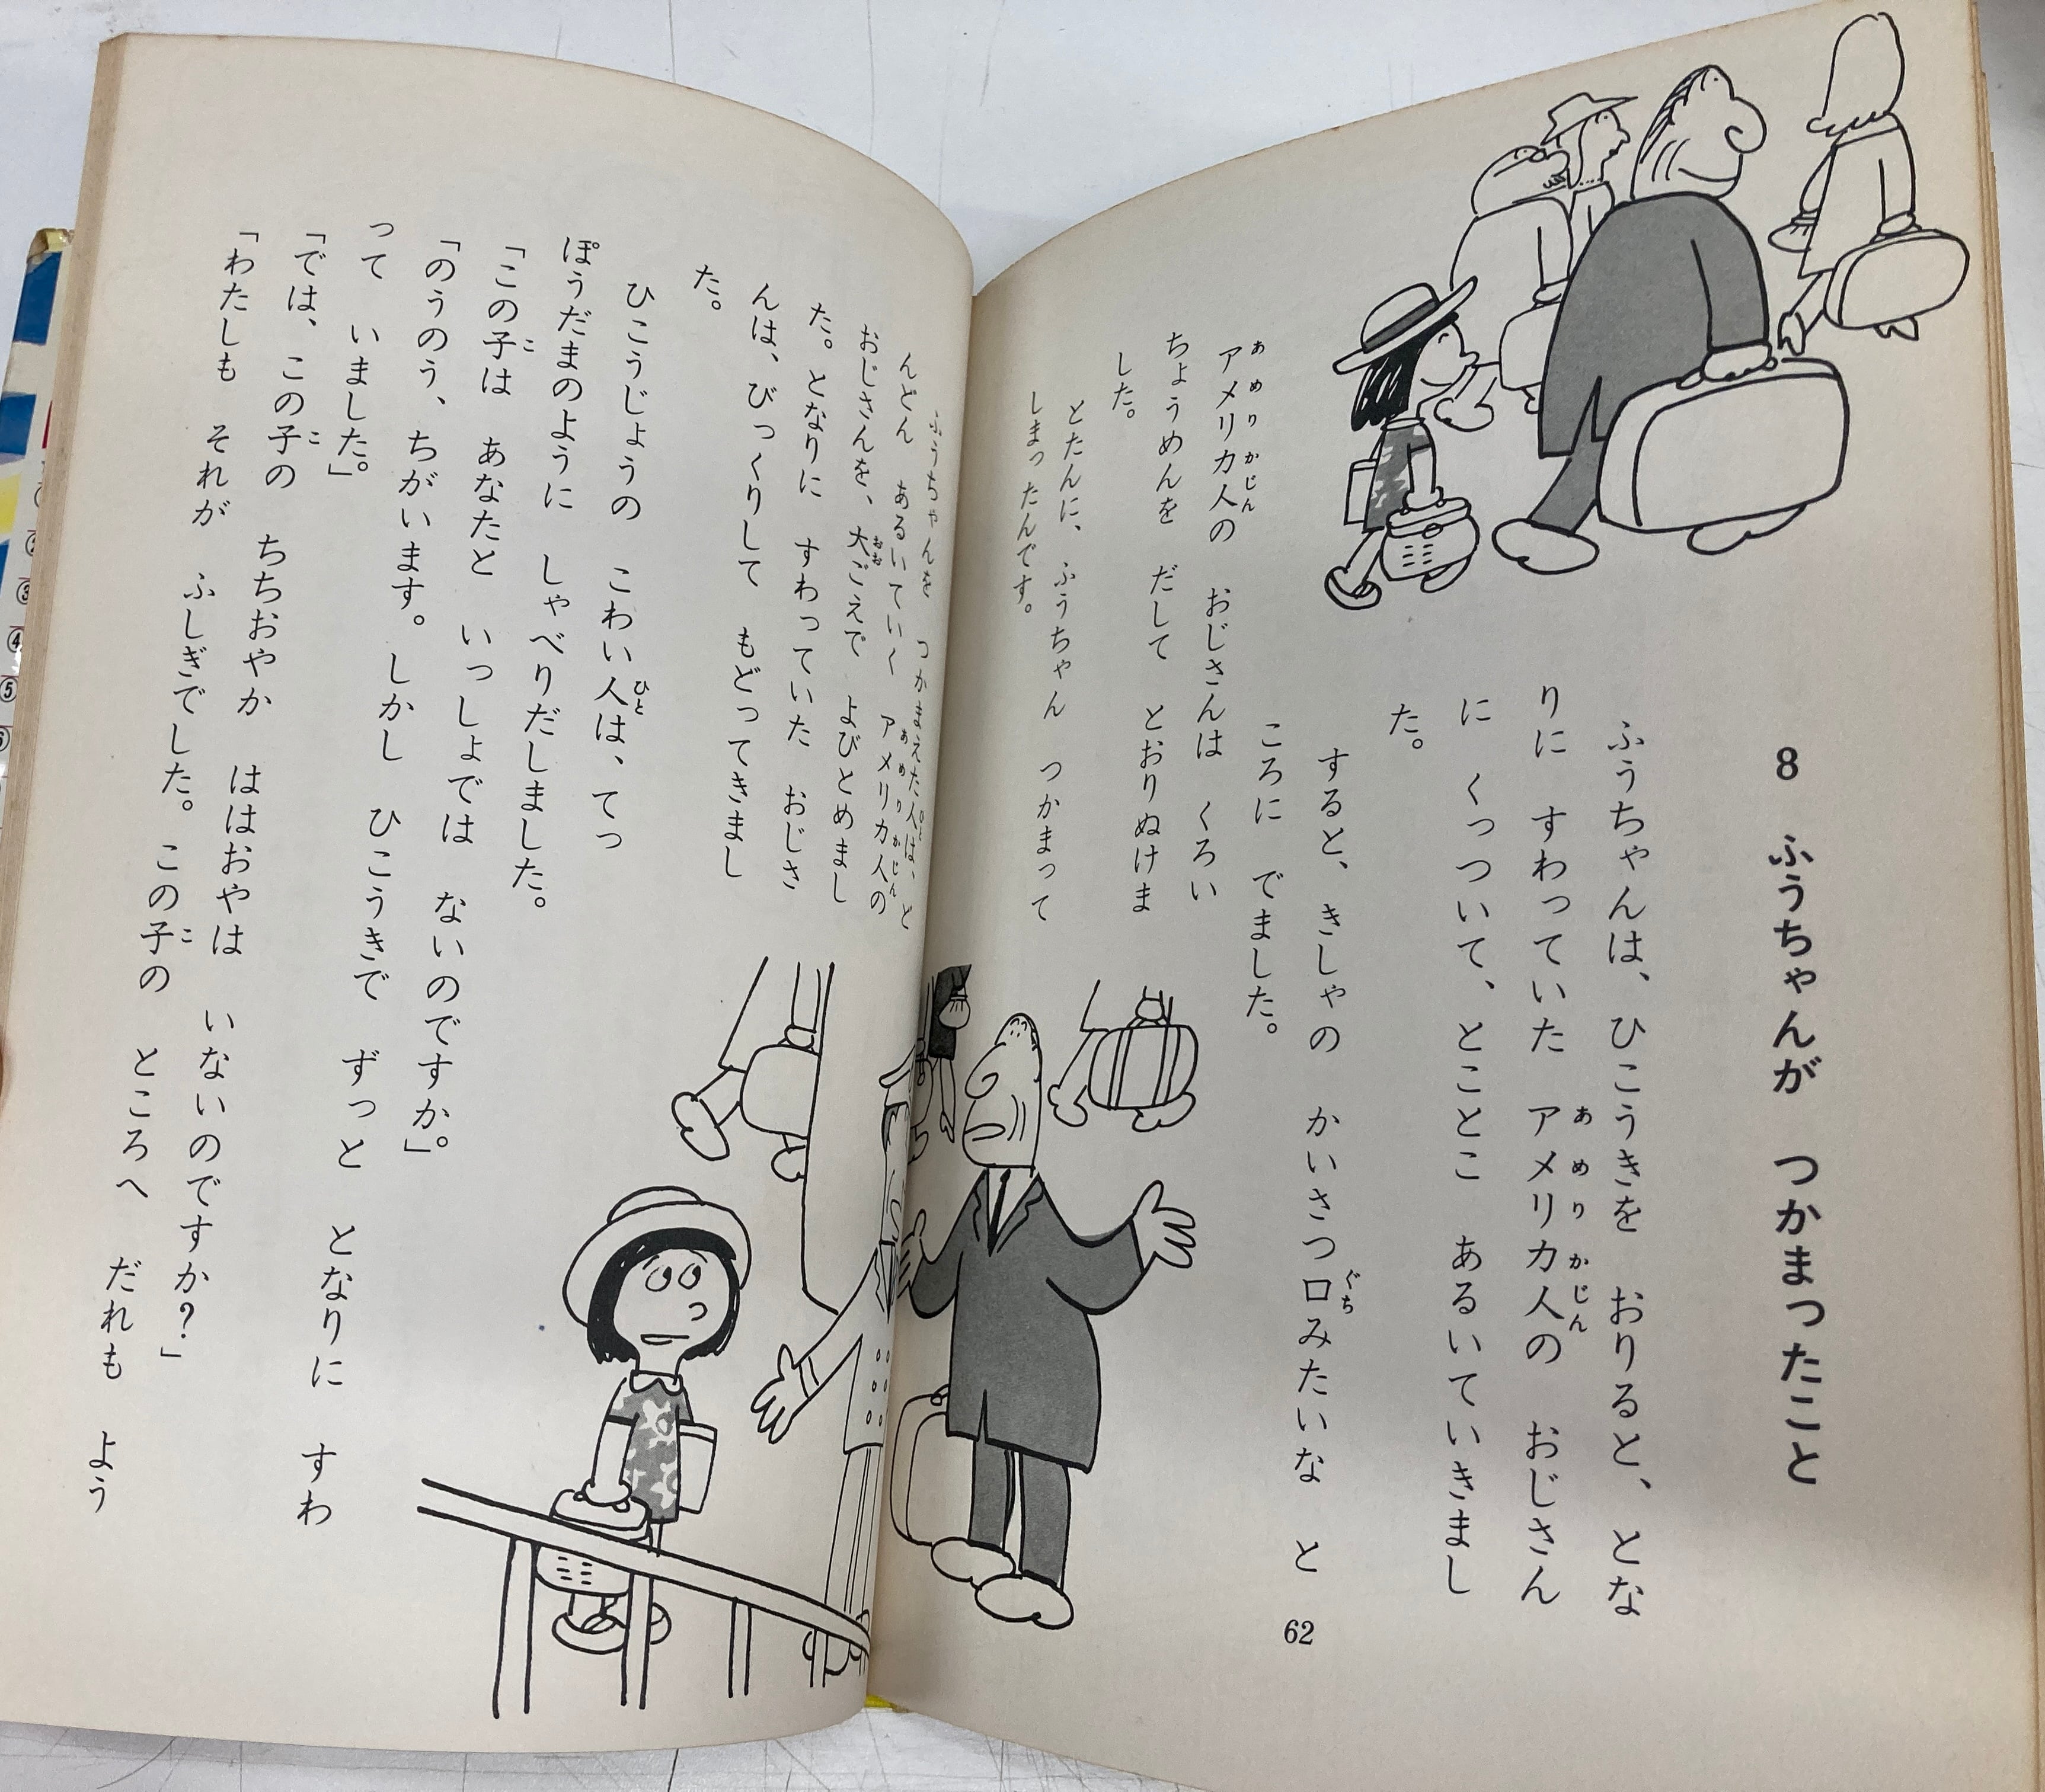 8 ふうちゃんが つかまったこと
ふうちゃんは、ひこうきを おりると、とな
りに すわっていた アメリカ人の おじさん
に くっついて、とことこ あるいていきまし
た。
すると、きしゃの かいさつ口みたいな と
ころに でました。
アメリカ人の おじさんは くろい
ちょうめんを だして とおりぬけま
した。
とたんに、ふうちゃん つかまって
しまったんです。
62
ふうちゃんを つかまえた人は、ど
んどん あるいていく アメリカ人の
おじさんを、大ごえで よびとめまし
た。となりに すわっていた おじさ
んは、びっくりして もどってきまし
た。
ひこうじょうの こわい人は、てっ
ぽうだまのように しゃべりだしました。
「この子は あなたと いっしょでは ないのですか。」
「のうのう、ちがいます。しかし ひこうきで ずっと となりに すわ
って いました。」
「では、この子の ちちおやか ははおやは いないのですか?」
「わたしも それが ふしぎでした。この子の ところへ だれも よう